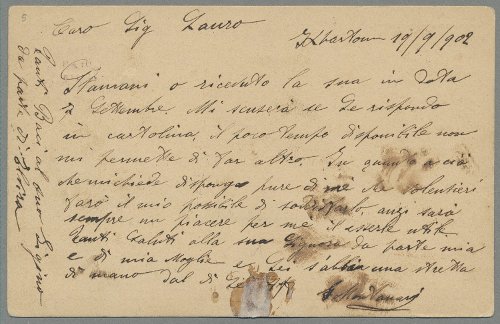 Caro Sig Lauro
Khartoum 19/9/902
Stamani o ricevuto la sua in data
7 Settembre. Mi scuserà se Le rispondo
in cartolina, il poco tempo disponibile non
mi permette di far altro. In quanto a ciò
che mi chiede disponga pure di me che volentieri
farò il mio possibile di soddisfarlo, anzi sarà
sempre un piacere per me il esserle utile
Tanti saluti alla sua Signora da parte mia
e di mia Moglie e Lei s'abbia una stretta
di mano dal di
Tanti Baci al suo Gigino
da parte di